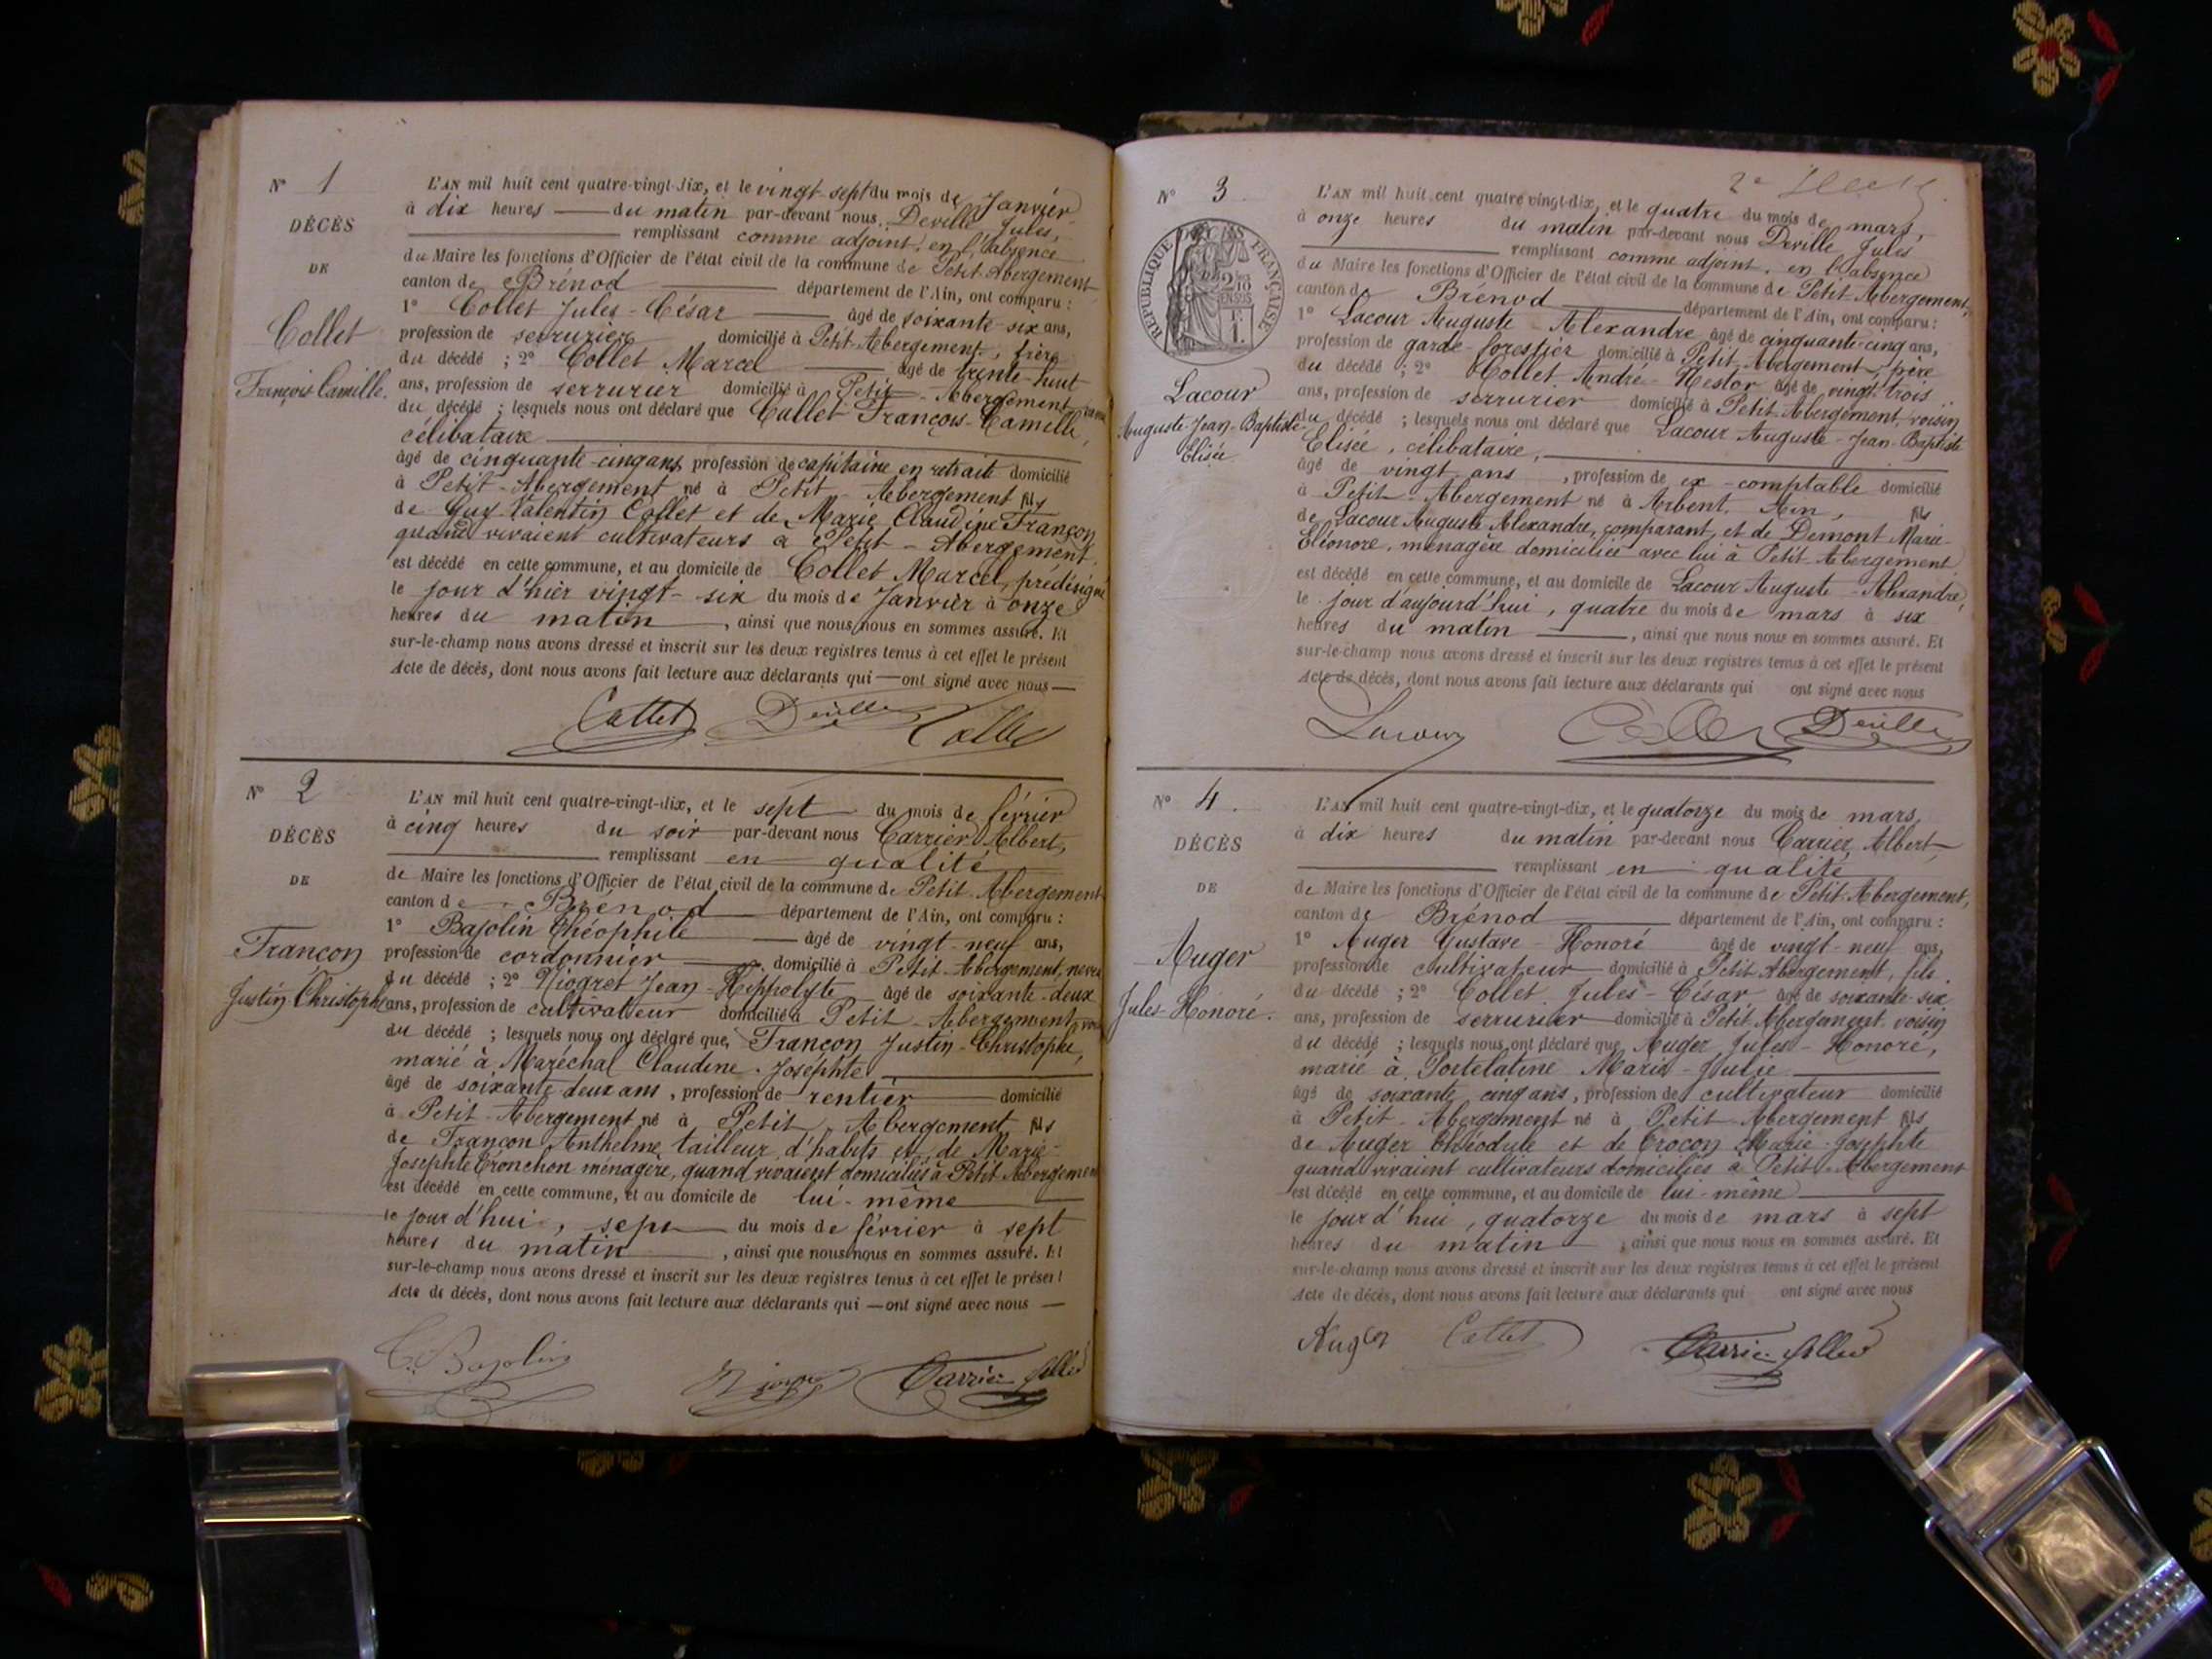 N° 1
DÉCÈS
DE
Collet
François Camille.
L'AN mil huit cent quatre-vingt-dix, et le vingt-sept du mois de Janvier
à dix heures du matin par-devant nous Deville Jules,
remplissant comme adjoint, en l'absence
du Maire les fonctions d'Officier de l'état civil de la commune de Petit-Abergement
canton de Brénod département de l'Ain, ont comparu :
1° Collet Jules-César âgé de soixante-six ans,
profession de serrurier domicilié à Petit-Abergement, frère
du décédé ; 2° Collet Marcel âgé de trente-huit
ans, profession de serrurier domicilié à Petit-Abergement
du décédé ; lesquels nous ont déclaré que Collet François-Camille,
célibataire
âgé de cinquante-cinq ans, profession de capitaine en retraite domicilié
à Petit-Abergement né à Petit-Abergement fils
de Guy Valentin Collet et de Marie Claudine Françon
quand vivaient cultivateurs à Petit-Abergement,
est décédé en cette commune, et au domicile de Collet Marcel, prédésigné
le jour d'hier vingt-six du mois de Janvier à onze
heures du matin, ainsi que nous nous en sommes assuré. Et
sur-le-champ nous avons dressé et inscrit sur les deux registres tenus à cet effet le présent
Acte de décès, dont nous avons fait lecture aux déclarants qui — ont signé avec nous —
Collet Deville Collet
N° 2
DÉCÈS
DE
Françon
Justin Christophe
L'AN mil huit cent quatre-vingt-dix, et le sept du mois de février
à cinq heures du soir par-devant nous Carrier Albert,
remplissant en qualité
de Maire les fonctions d'Officier de l'état civil de la commune de Petit-Abergement
canton de Brénod département de l'Ain, ont comparu :
1° Bajolin Théophile âgé de vingt-neuf ans,
profession de cordonnier domicilié à Petit-Abergement, neveu
du décédé ; 2° Niogret Jean-Hippolyte âgé de soixante-deux
ans, profession de cultivateur domicilié à Petit-Abergement
du décédé ; lesquels nous ont déclaré que, Françon Justin-Christophe,
marié à Maréchal Claudine-Joséphte
âgé de soixante-deux ans, profession de rentier domicilié
à Petit-Abergement né à Petit-Abergement fils
de Françon Anthelme tailleur d'habits et de Marie-
Josephte Cronchon ménagère, quand vivaient domiciliés à Petit-Abergement
est décédé en cette commune, et au domicile de lui-même
le jour d'hui, sept du mois de février à sept
heures du matin, ainsi que nous nous en sommes assuré. Et
sur-le-champ nous avons dressé et inscrit sur les deux registres tenus à cet effet le présent
Acte de décès, dont nous avons fait lecture aux déclarants qui — ont signé avec nous —
Bajolin Niogret Carrier
2e
N° 3
RÉPUBLIQUE FRANÇAISE
Lacour
Auguste-Jean-Baptiste
Elisée
L'AN mil huit cent quatre-vingt-dix, et le quatre du mois de mars,
à onze heures du matin par-devant nous Deville Jules
remplissant comme adjoint, en l'absence
du Maire les fonctions d'Officier de l'état civil de la commune de Petit-Abergement,
canton de Brénod département de l'Ain, ont comparu :
1° Lacour Auguste-Alexandre âgé de cinquante-cinq ans,
profession de garde-forestier domicilié à Petit-Abergement, père
du décédé ; 2° Collet André-Nestor âgé de vingt-trois
ans, profession de serrurier domicilié à Petit-Abergement, voisin
du décédé ; lesquels nous ont déclaré que Lacour Auguste-Jean-Baptiste
Elisée, célibataire,
âgé de vingt ans, profession de ex-comptable domicilié
à Petit-Abergement né à Arbent, Ain, fils
de Lacour Auguste Alexandre, comparant, et de Démont Marie-
Eléonore, ménagère domiciliée avec lui à Petit-Abergement
est décédé en cette commune, et au domicile de Lacour Auguste-Alexandre,
le jour d'aujourd'hui, quatre du mois de mars à six
heures du matin, ainsi que nous nous en sommes assuré. Et
sur-le-champ nous avons dressé et inscrit sur les deux registres tenus à cet effet le présent
Acte de décès, dont nous avons fait lecture aux déclarants qui ont signé avec nous
Lacour Collet Deville
N° 4.
DÉCÈS
DE
Auger
Jules-Honoré.
L'AN mil huit cent quatre-vingt-dix, et le quatorze du mois de mars,
à dix heures du matin par-devant nous Carrier Albert,
remplissant en qualité
de Maire les fonctions d'Officier de l'état civil de la commune de Petit-Abergement,
canton de Brénod département de l'Ain, ont comparu :
1° Auger Gustave-Honoré âgé de vingt-neuf ans,
profession de cultivateur domicilié à Petit-Abergement, fils
du décédé ; 2° Collet Jules-César âgé de soixante-six
ans, profession de serrurier domicilié à Petit-Abergement, voisin
du décédé ; lesquels nous ont déclaré que Auger Jules-Honoré,
marié à Portelatine Marie-Julie
âgé de soixante cinq ans, profession de cultivateur domicilié
à Petit-Abergement né à Petit-Abergement fils
de Auger Théodule et de Crocon Marie-Josephte
quand vivaient cultivateurs domiciliés à Petit-Abergement
est décédé en cette commune, et au domicile de lui-même
le jour d'hui, quatorze du mois de mars à sept
heures du matin, ainsi que nous nous en sommes assuré. Et
sur-le-champ nous avons dressé et inscrit sur les deux registres tenus à cet effet le présent
Acte de décès, dont nous avons fait lecture aux déclarants qui ont signé avec nous
Auger Collet Carrier